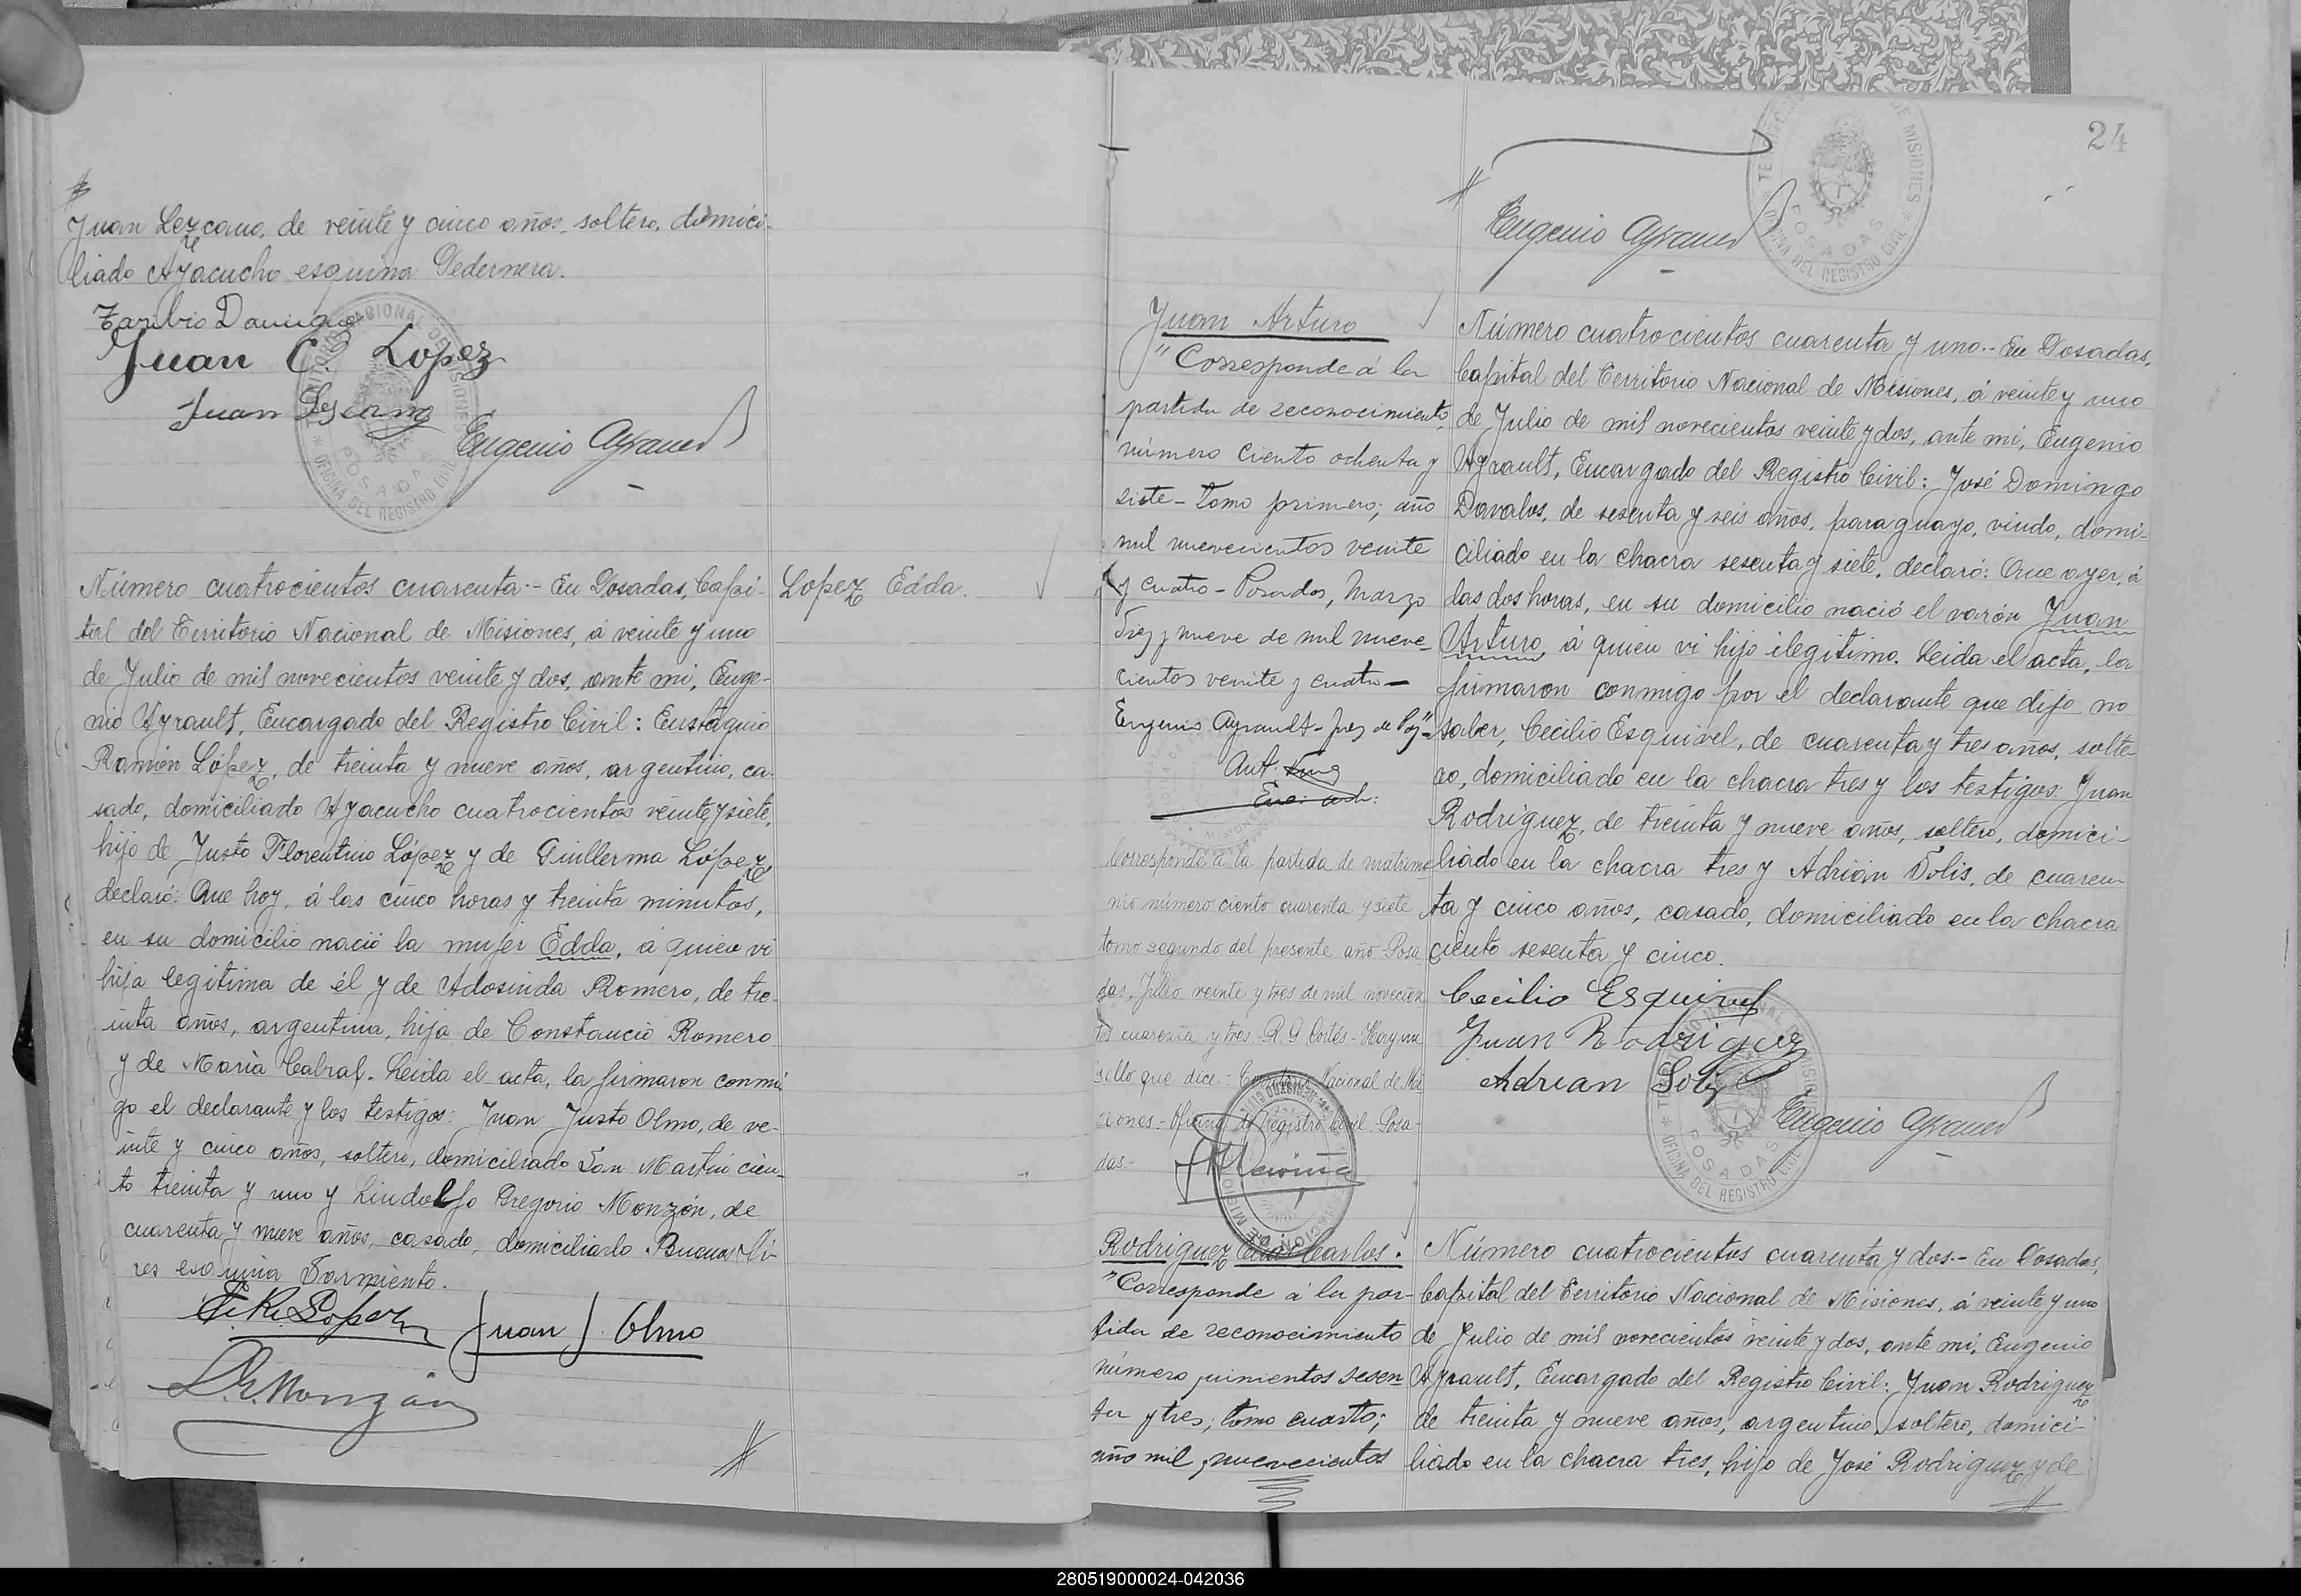 Juan Lezcano, de veinte y cinco años, soltero, domici-
liado Ayacucho esquina Pedernera.
Juan C. Lopez
Juan Lescano
Eugenio Ayrault
TERRITORIO NACIONAL DE MISIONES
POSADAS
OFICINA DEL REGISTRO CIVIL
Lopez Edda.
Número cuatrocientos cuarenta.- En Posadas, Capi-
tal del Territorio Nacional de Misiones, á veinte y uno
de Julio de mil novecientos veinte y dos, ante mi, Euge-
nio Ayrault, Encargado del Registro Civil: Eustaquio
Ramón López, de treinta y nueve años, argentino, ca-
sado, domiciliado Ayacucho cuatrocientos veinte y siete,
hijo de Justo Florentino López y de Guillerma López,
declaró: Que hoy, á las cinco horas y treinta minutos,
en su domicilio nació la mujer Edda, á quien vi
hija legitima de él y de Adosinda Romero, de tre-
inta años, argentina, hija de Constancio Romero
y de Maria Cabral. Leida el acta, la firmaron conmi
go el declarante y los testigos: Juan Justo Olmo, de ve-
inte y cinco años, soltero, domiciliado San Martin cien-
to treinta y uno y Lindolfo Gregorio Monzón, de
cuarenta y nueve años, casado, domiciliado Buenos Ai-
res esquina Sarmiento.
E. R. Lopez
Juan J. Olmo
L. G. Monzón
24
Eugenio Ayrault
TERRITORIO NACIONAL DE MISIONES
POSADAS
OFICINA DEL REGISTRO CIVIL
Juan Arturo
"Corresponde á la
partida de reconocimiento
número ciento ochenta y
siete - tomo primero; año
mil nuevecientos veinte
y cuatro - Posadas, Marzo
diez y nueve de mil nueve-
cientos veinte y cuatro -
Eugenio Ayrault - Juez de Paz"
Corresponde a la partida de matrimo
nio número ciento cuarenta y siete
tomo segundo del presente año - Posa
das, Julio veinte y tres de mil novecien
tos cuarenta y tres - R. G. Cortés - Hay un
sello que dice: Territorio Nacional de Mi
siones - Oficina del Registro Civil - Posa-
das.-
Número cuatrocientos cuarenta y uno.- En Posadas,
Capital del Territorio Nacional de Misiones, á veinte y uno
de Julio de mil novecientos veinte y dos, ante mi, Eugenio
Ayrault, Encargado del Registro Civil: José Domingo
Davalos, de sesenta y seis años, paraguayo, viudo, domi-
ciliado en la chacra sesenta y siete, declaró: Que ayer, á
las dos horas, en su domicilio nació el varón Juan
Arturo, á quien vi hijo ilegitimo. Leida el acta, la
firmaron conmigo por el declarante que dijo no
saber, Cecilio Esquivel, de cuarenta y tres años, solte-
ro, domiciliado en la chacra tres y los testigos: Juan
Rodriguez, de treinta y nueve años, soltero, domici-
liado en la chacra tres y Adrián Solis, de cuaren-
ta y cinco años, casado, domiciliado en la chacra
ciento sesenta y cinco.
Cecilio Esquivel
Juan Rodriguez
Adrian Solis
Eugenio Ayrault
TERRITORIO NACIONAL DE MISIONES
POSADAS
OFICINA DEL REGISTRO CIVIL
Rodriguez Carlos.
"Corresponde á la par-
tida de reconocimiento
número quinientos sesen
ta y tres; tomo cuarto;
año mil nuevecientos
Número cuatrocientos cuarenta y dos.- En Posadas,
Capital del Territorio Nacional de Misiones, á veinte y uno
de Julio de mil novecientos veinte y dos, ante mi, Eugenio
Ayrault, Encargado del Registro Civil: Juan Rodriguez
de treinta y nueve años, argentino, soltero, domici-
liado en la chacra tres, hijo de José Rodriguez y de
280519000024-042036